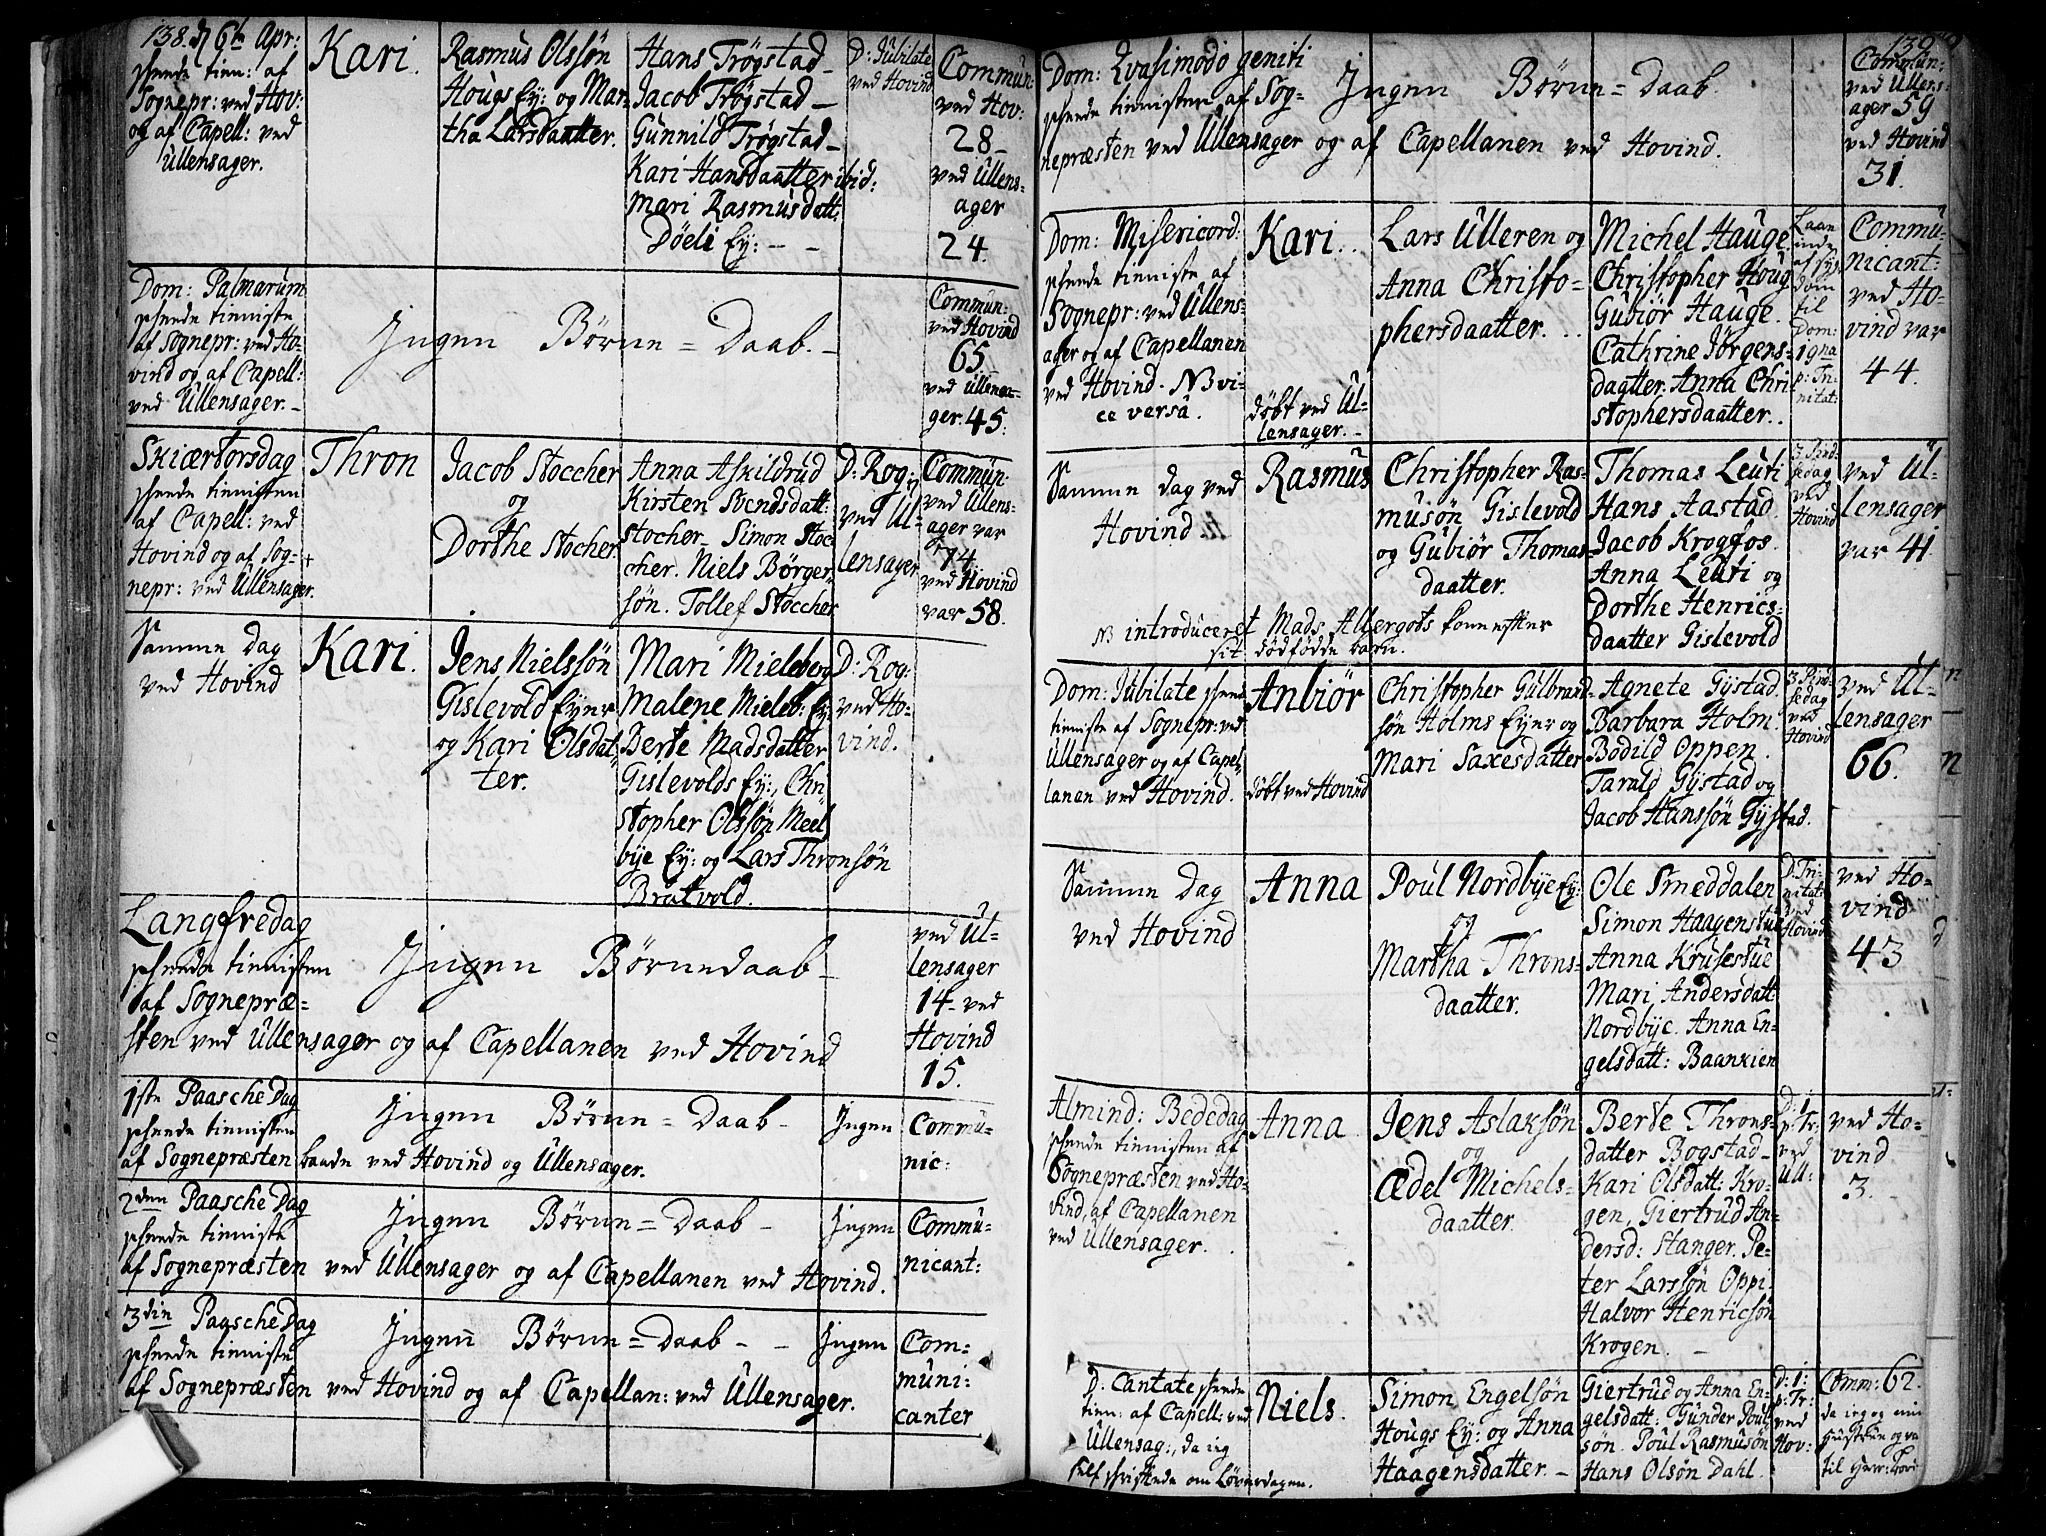 138. d 6te Apr:
skeede tien: af
Sognepr: ved Hov:
og af Capell: ved
Ullensager.
Kari.
Rasmus Olssøn
Hougs Ey: og Mar-
tha Larsdaatter.
Hans Trøgstad
Jacob Trøgstad
Gunnild Trøgstad
Kari Hansdaatter ibid:
Mari Rasmusdatt:
Døeli Ey:
D: Jubilate
ved Hovind
Commun:
ved Hov:
28
ved Ullens-
ager
24.
Dom: Palmarum
skeede tieniste
af Sognepr: ved Ho-
vind og af Capell:
ved Ullensager.
Ingen Børne=Daab.
Commun:
ved Hovind
65
ved Ullensa-
ger. 45.
Skiærtorsdag
skeede tienisten
af Capell: ved
Hovind og af Sog-
nepr: ved Ullensager.
Thron
Jacob Stoccher
og
Dorthe Stocher
Anna Askildrud
Kirsten Svendsdatt:
stocher. Simon Stoc-
cher. Niels Børger-
søn. Tollef Stoccher
D: Rog:
ved Ul-
lensager
Commun:
ved Ullens-
ager var
74.
ved Hovind
var 58.
Samme Dag
ved Hovind
Kari.
Jens Nielssøn
Gislevold Eyner
og Kari Olsdat-
ter.
Mari Mieleberg
Malene Mieleb: Ey:
Berte Madsdatter
Gislevolds Ey:, Chri-
stopher Olssøn Meel-
bye Ey: og Lars Thronsøn
Bratvold.
D: Rog:
ved Ho-
vind.
Langfredag
skeede tienisten
af Sognepræ-
sten ved Ullensager og af Capellanen ved Hovind
Ingen Børnedaab
ved Ul-
lensager
14 ved
Hovind
15.
1ste Paasche Dag
skeede tienisten
af Sognepræsten baade ved Hovind og Ullensager.
Ingen Børne=Daab
Ingen
Commu-
nic:
2den Paasche Dag
skeede tieniste
af Sognepræsten ved Ullensager og af Capellanen ved Hovind.
Ingen Børne=Daab
Ingen
Commu-
nicant:
3die Paasche Dag
skeede tieniste
af Sognepræsten ved Hovind og af Capellan: ved Ullensager.
Ingen Børne=Daab
Ingen
Com-
muni-
canter
139
Dom: Qvasimodo geniti
skeede tienisten af Sog-
nepræsten ved Ullensager og af Capellanen ved Hovind.
Ingen Børne=Daab
Commun:
ved Ullens-
ager 59
ved Hovind
31.
Dom: Misericord:
skeede tieniste af
Sognepr: ved Ullens-
ager og af Capellanen
ved Hovind. NB vi-
ce versâ.
Kari.
døbt ved Ul-
lensager.
Lars Ulleren og
Anna Christo-
phersdaatter.
Michel Hauge
Christopher Houg
Gubiør Hauge.
Cathrine Jørgens-
daatter. Anna Chri-
stophersdaatter.
til
Dom:
Commu-
nicant:
ved Ho-
vind var
44.
Samme dag ved
Hovind
Rasmus
Christopher Ras-
musøn Gislevold
og Gubiør Thomas-
daatter.
Thomas Leuti
Hans Aastad
Jacob Krogfos.
Anna Leuti og
Dorthe Henrics-
daatter Gislevold
3 Pind-
sedag
ved
Hovind
ved Ul-
lensager
var 41.
NB introduceret Mads Allergots kone efter
sit dødfødde barn.
Dom: Jubilate skeede
tieniste af Sognepr: ved
Ullensager og af Capel-
lanen ved Hovind.
Anbiør
døbt ved Hovind
Christopher Gulbrand-
søn Holms Eyner og
Mari Saxesdatter
Agnete Gystad.
Barbara Holm.
Bodild Oppen.
Tarald Gystad og
Jacob Hanssøn Gystad.
3 Pind-
sedag
ved
Hovind
ved Ul-
lensager
66.
Samme Dag
ved Hovind
Anna
Poul Nordbye Ey:
og
Martha Throns-
daatter.
Ole Smeddalen
Simon Haagenstue
Anna Krusestue
Mari Andersdatt:
Nordbye. Anna En-
gelsdatt: Baankien
D. Tri-
nitat:
ved
Hovind
ved Ho-
vind
43
Almind: Bededag
skeede tienisten af
Sognepræsten ved Ho-
vind, af Capellanen
ved Ullensager.
Anna
Jens Aslaksøn
og
Ædel Michels-
daatter.
Berte Throns-
datter Bogstad
Kari Olsdatt: Kro-
gen, Giertrud An-
dersd: Stanger. Pe-
ter Larssøn Oppi.
Halvor Henricsøn
Krogen.
D: 1
p: Tr:
ved
Ull:
ved Ho-
vind
3.
D: Cantate skeede
tien: af Capell: ved
Ullensag:, da jeg
self skriftede om Løverdagen.
Niels.
Simon Engelsøn
Hougs Ey: og Anna
Haagensdatter.
Giertrud og Anna En-
gelsdatt: Gunder Poul-
søn. Poul Rasmusøn
Hans Olsøn Dahl.
D: 1:
p: Tr:
ved
Hov:
Comm: 62.
da jeg og min